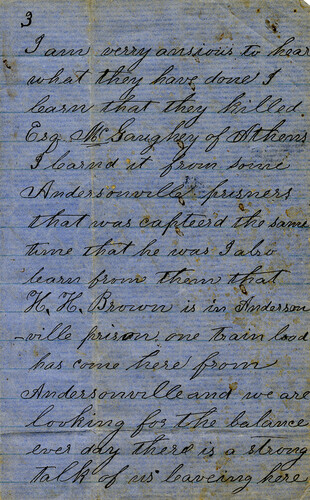 3
I am verry anxious to hear
what they have done I
learn that they killed
Esq McGaughey of Athens
I learnd it from some
Andersonville prisners
that was capteerd the same
time that he was I also
learn from them that
H. H. Brown is in Anderson
-ville prison one train load
has come here from
Andersonville and we are
looking for the balance
ever day there is a strong
talk of us leaveing here